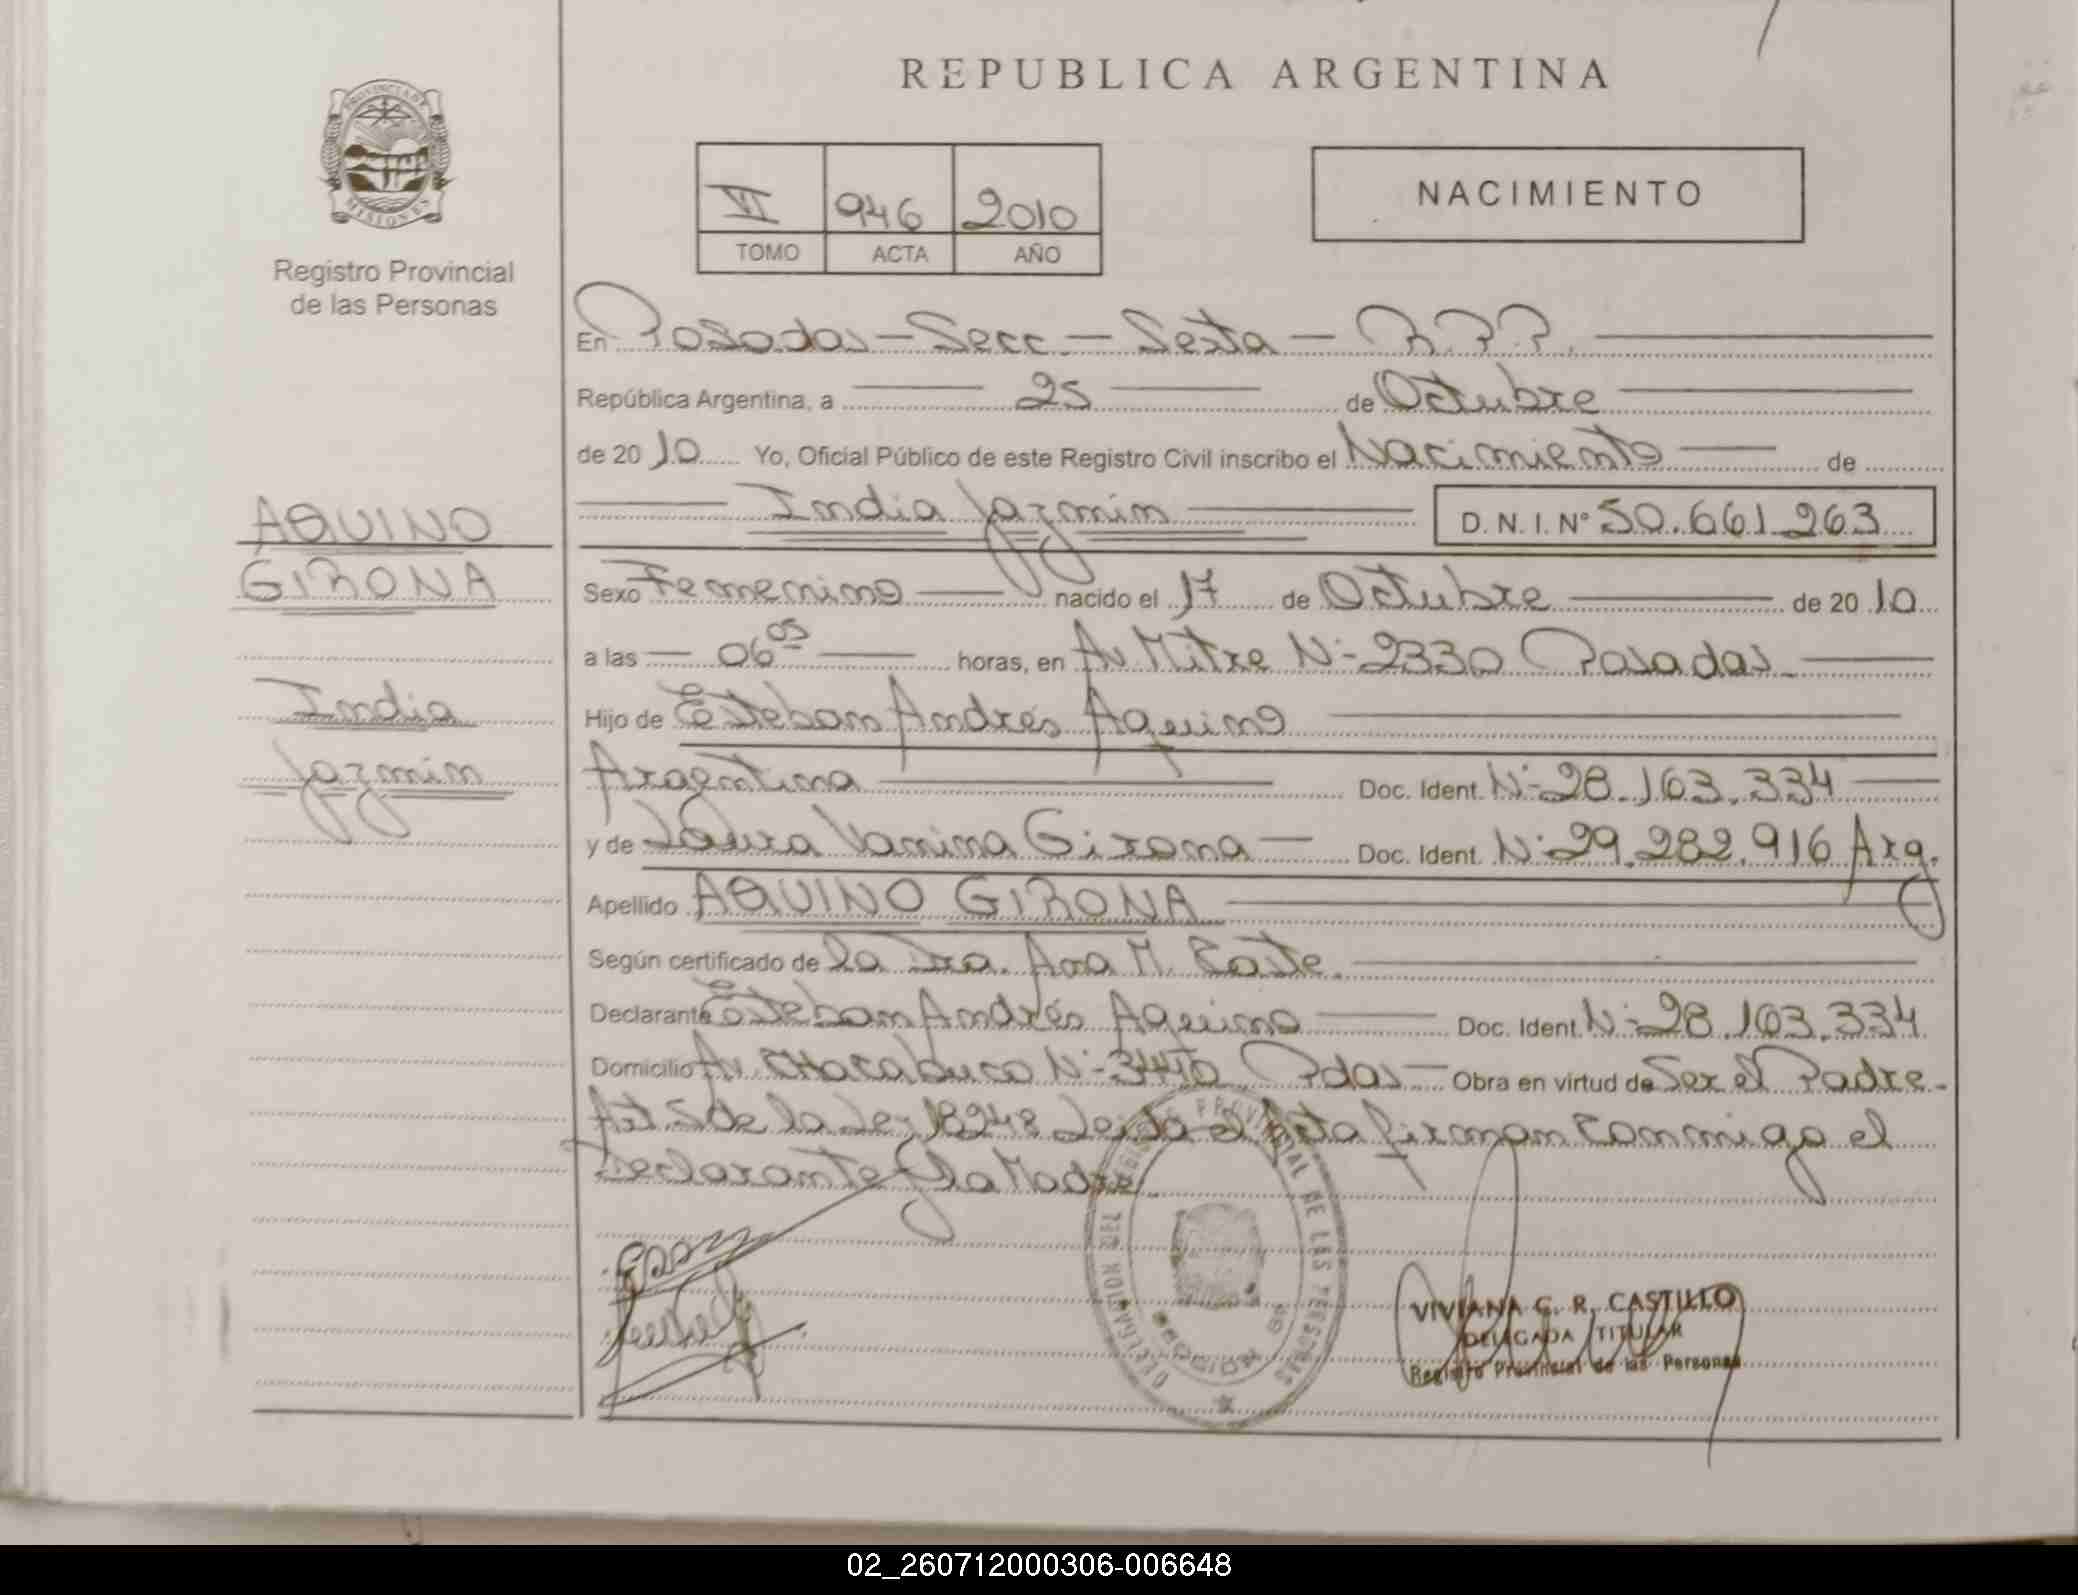 REPUBLICA ARGENTINA
PROVINCIA DE
MISIONES
Registro Provincial
de las Personas
VI 946 2010
TOMO ACTA AÑO
NACIMIENTO
En Posadas - Secc. - Sexta - R.P.P.
República Argentina, a 25 de Octubre
de 20 10 Yo, Oficial Público de este Registro Civil inscribo el Nacimiento de
India Jazmin D. N. I. N° 50.661.263
AQUINO
GIRONA
India
Jazmin
Sexo Femenino nacido el 17 de Octubre de 20 10
a las 06 05 horas, en Av Mitre N° 2330 Posadas
Hijo de Esteban Andrés Aquino
Argentina Doc. Ident. N° 28.163.334
y de Laura Vanina Girona Doc. Ident. N° 29.282.916 Arg.
Apellido AQUINO GIRONA
Según certificado de la Dra. Ana M.
Declarante Esteban Andrés Aquino Doc. Ident. N° 28.163.334
Domicilio Av. Chacabuco N° Pdas Obra en virtud de Ser el Padre
Art 5 de la Ley 18248 Leida el Acta firman conmigo el
Declarante y la Madre
DELEGACION DEL REGISTRO PROVINCIAL DE LAS PERSONAS
VIVIANA C. R. CASTILLO
DELEGADA TITULAR
Registro Provincial de las Personas
02_260712000306-006648